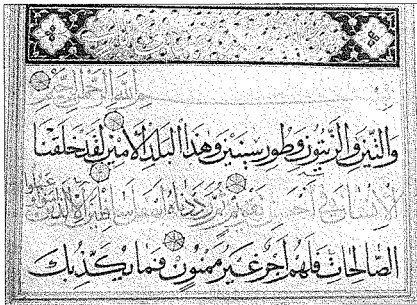 بسم الله الرحمن الرحيم
والتين والزيتون وطور سينين وهذا البلد الأمين لقد خلقنا
الإنسان في أحسن تقويم ثم رددناه أسفل سافلين إلا الذين آمنوا وعملوا
الصالحات فلهم أجر غير ممنون فما يكذبك